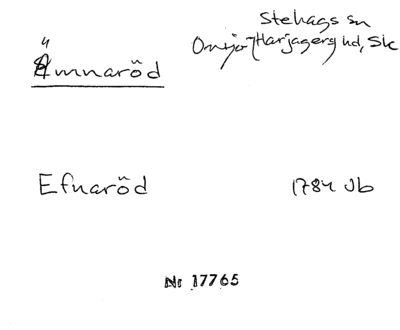 Stehags sn
Ämnaröd
Onsjö-/Harjagers hd, Sk
Efnaröd
1784 Jb
Nr 17765